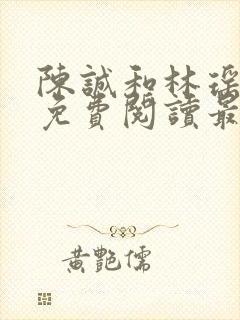 陳誠和林瑤
免費閱讀最
黃艷儒